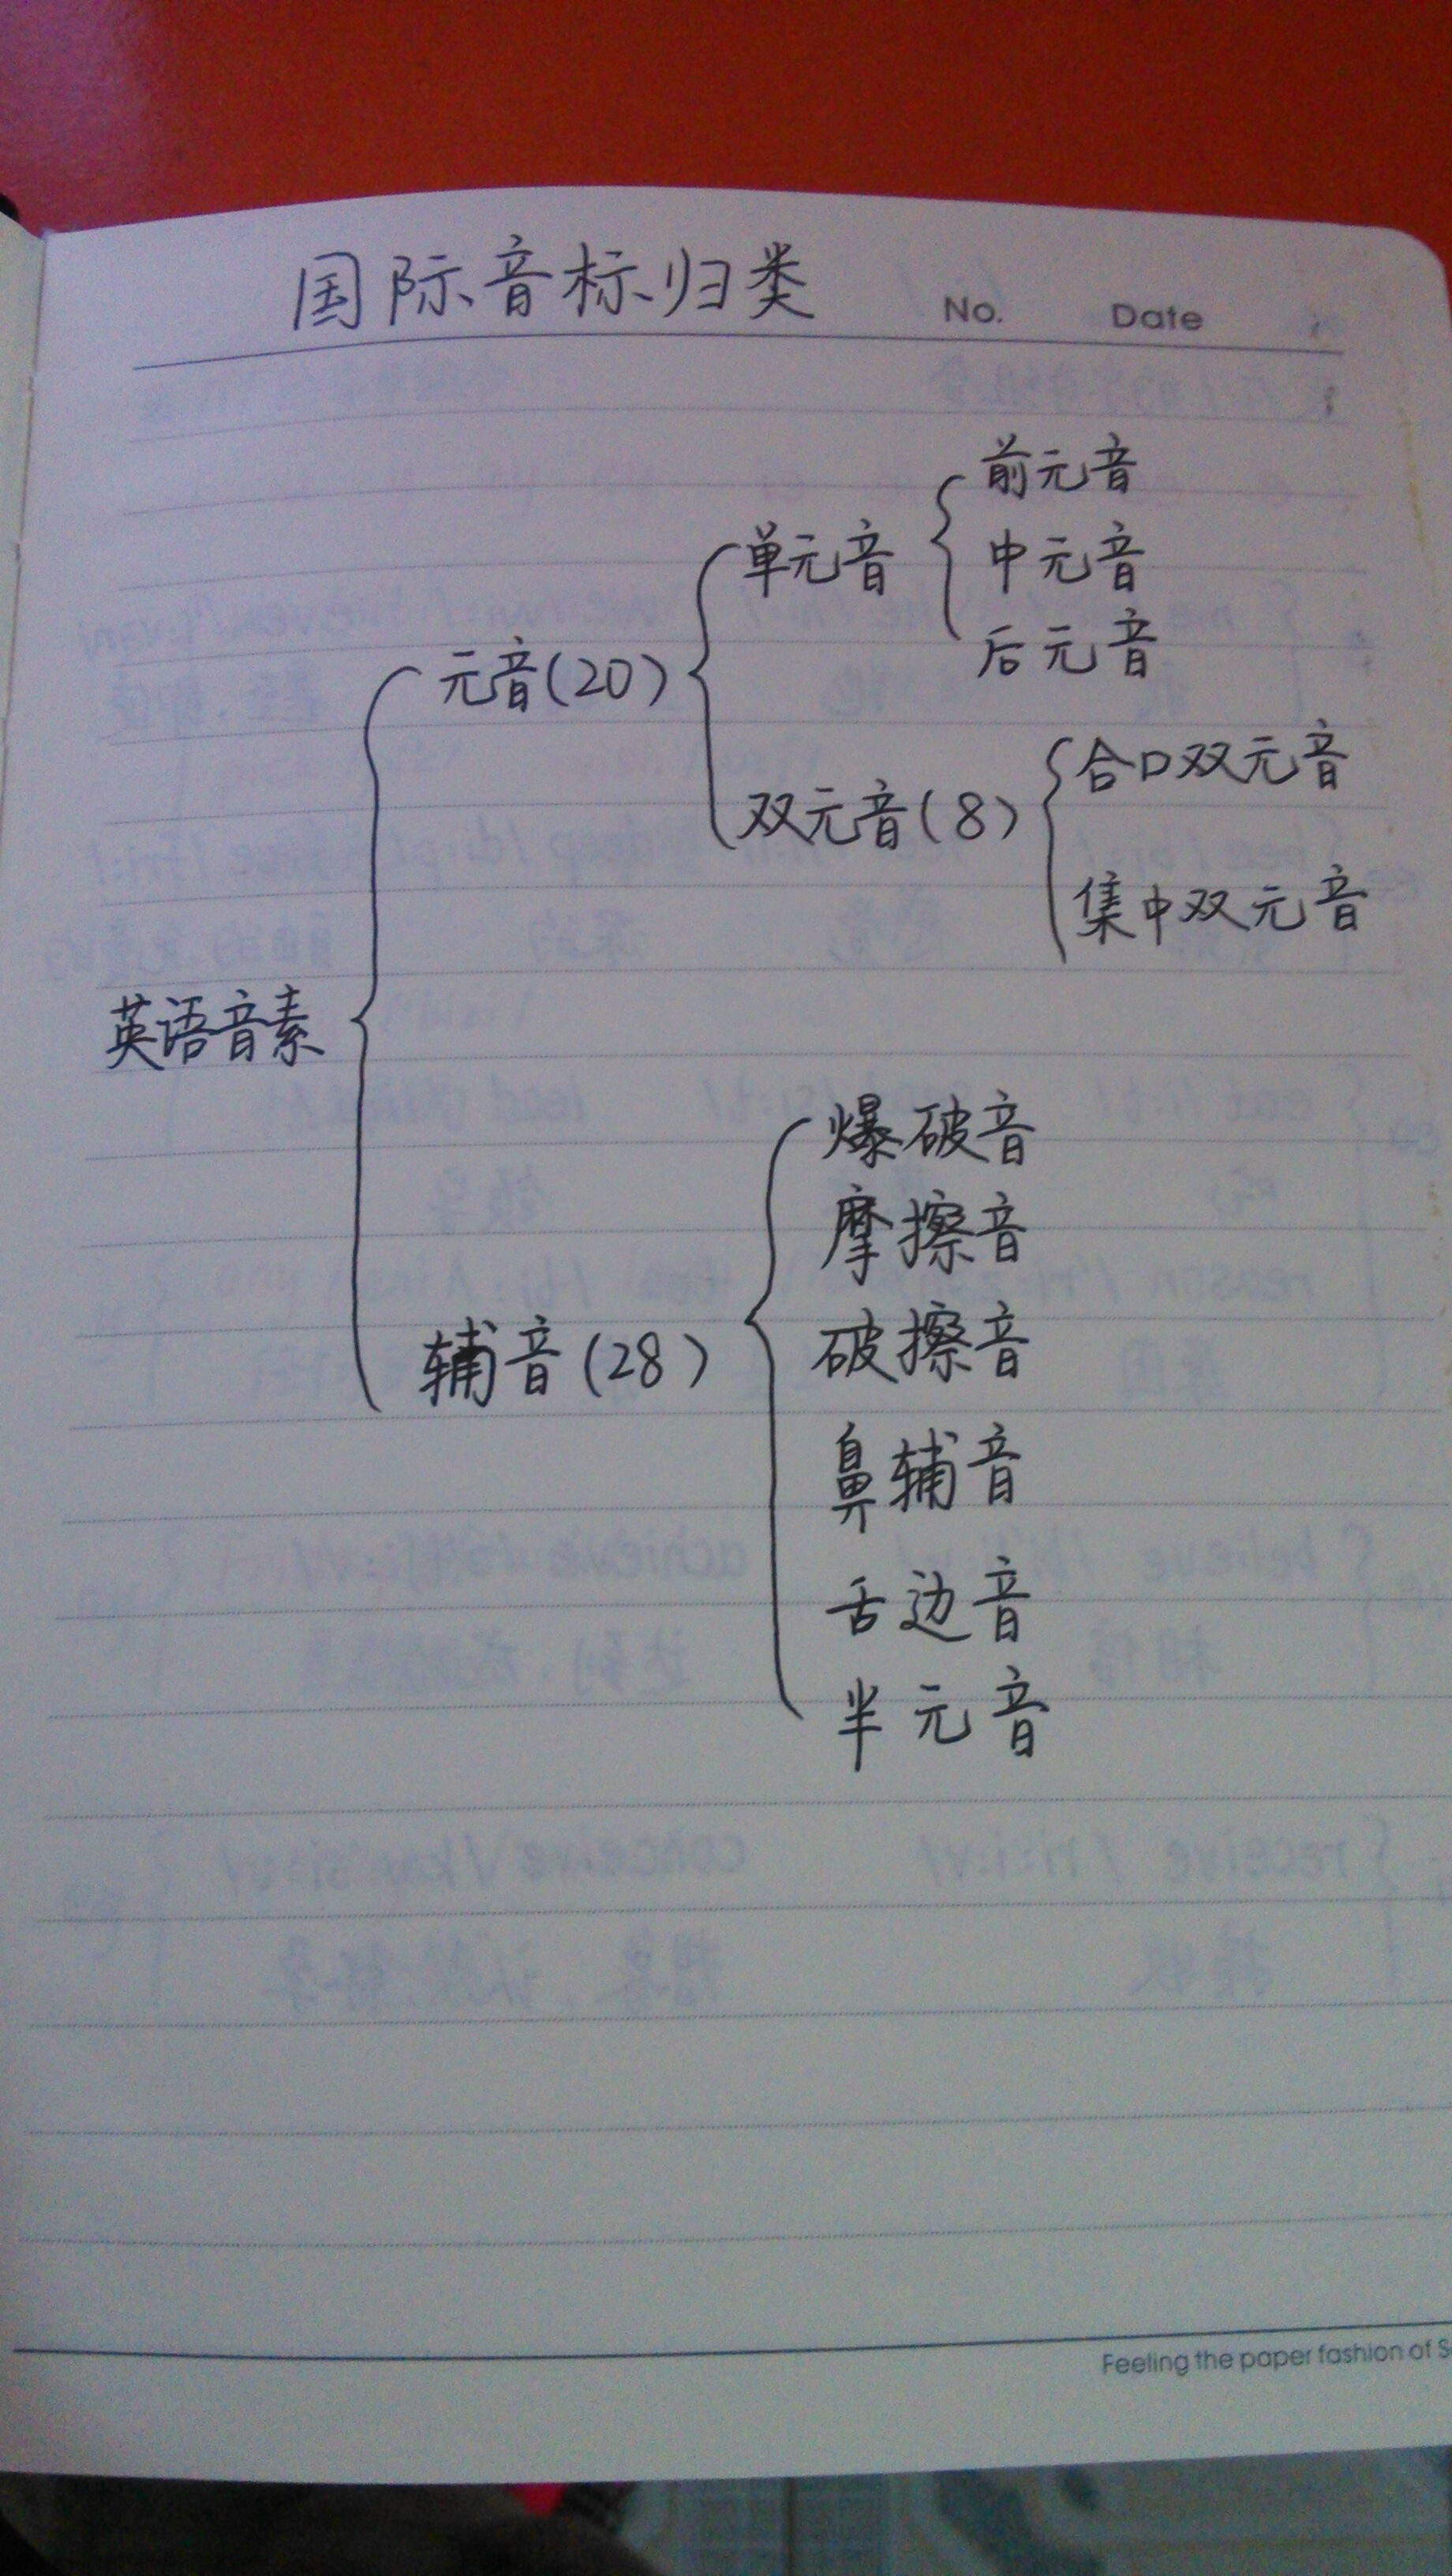 国际音标归类
No. Date
前元音
单元音
中元音
后元音
元音(20)
合口双元音
双元音(8)
集中双元音
英语音素
爆破音
摩擦音
破擦音
辅音(28)
鼻辅音
舌边音
半元音
Feeling the paper fashion of